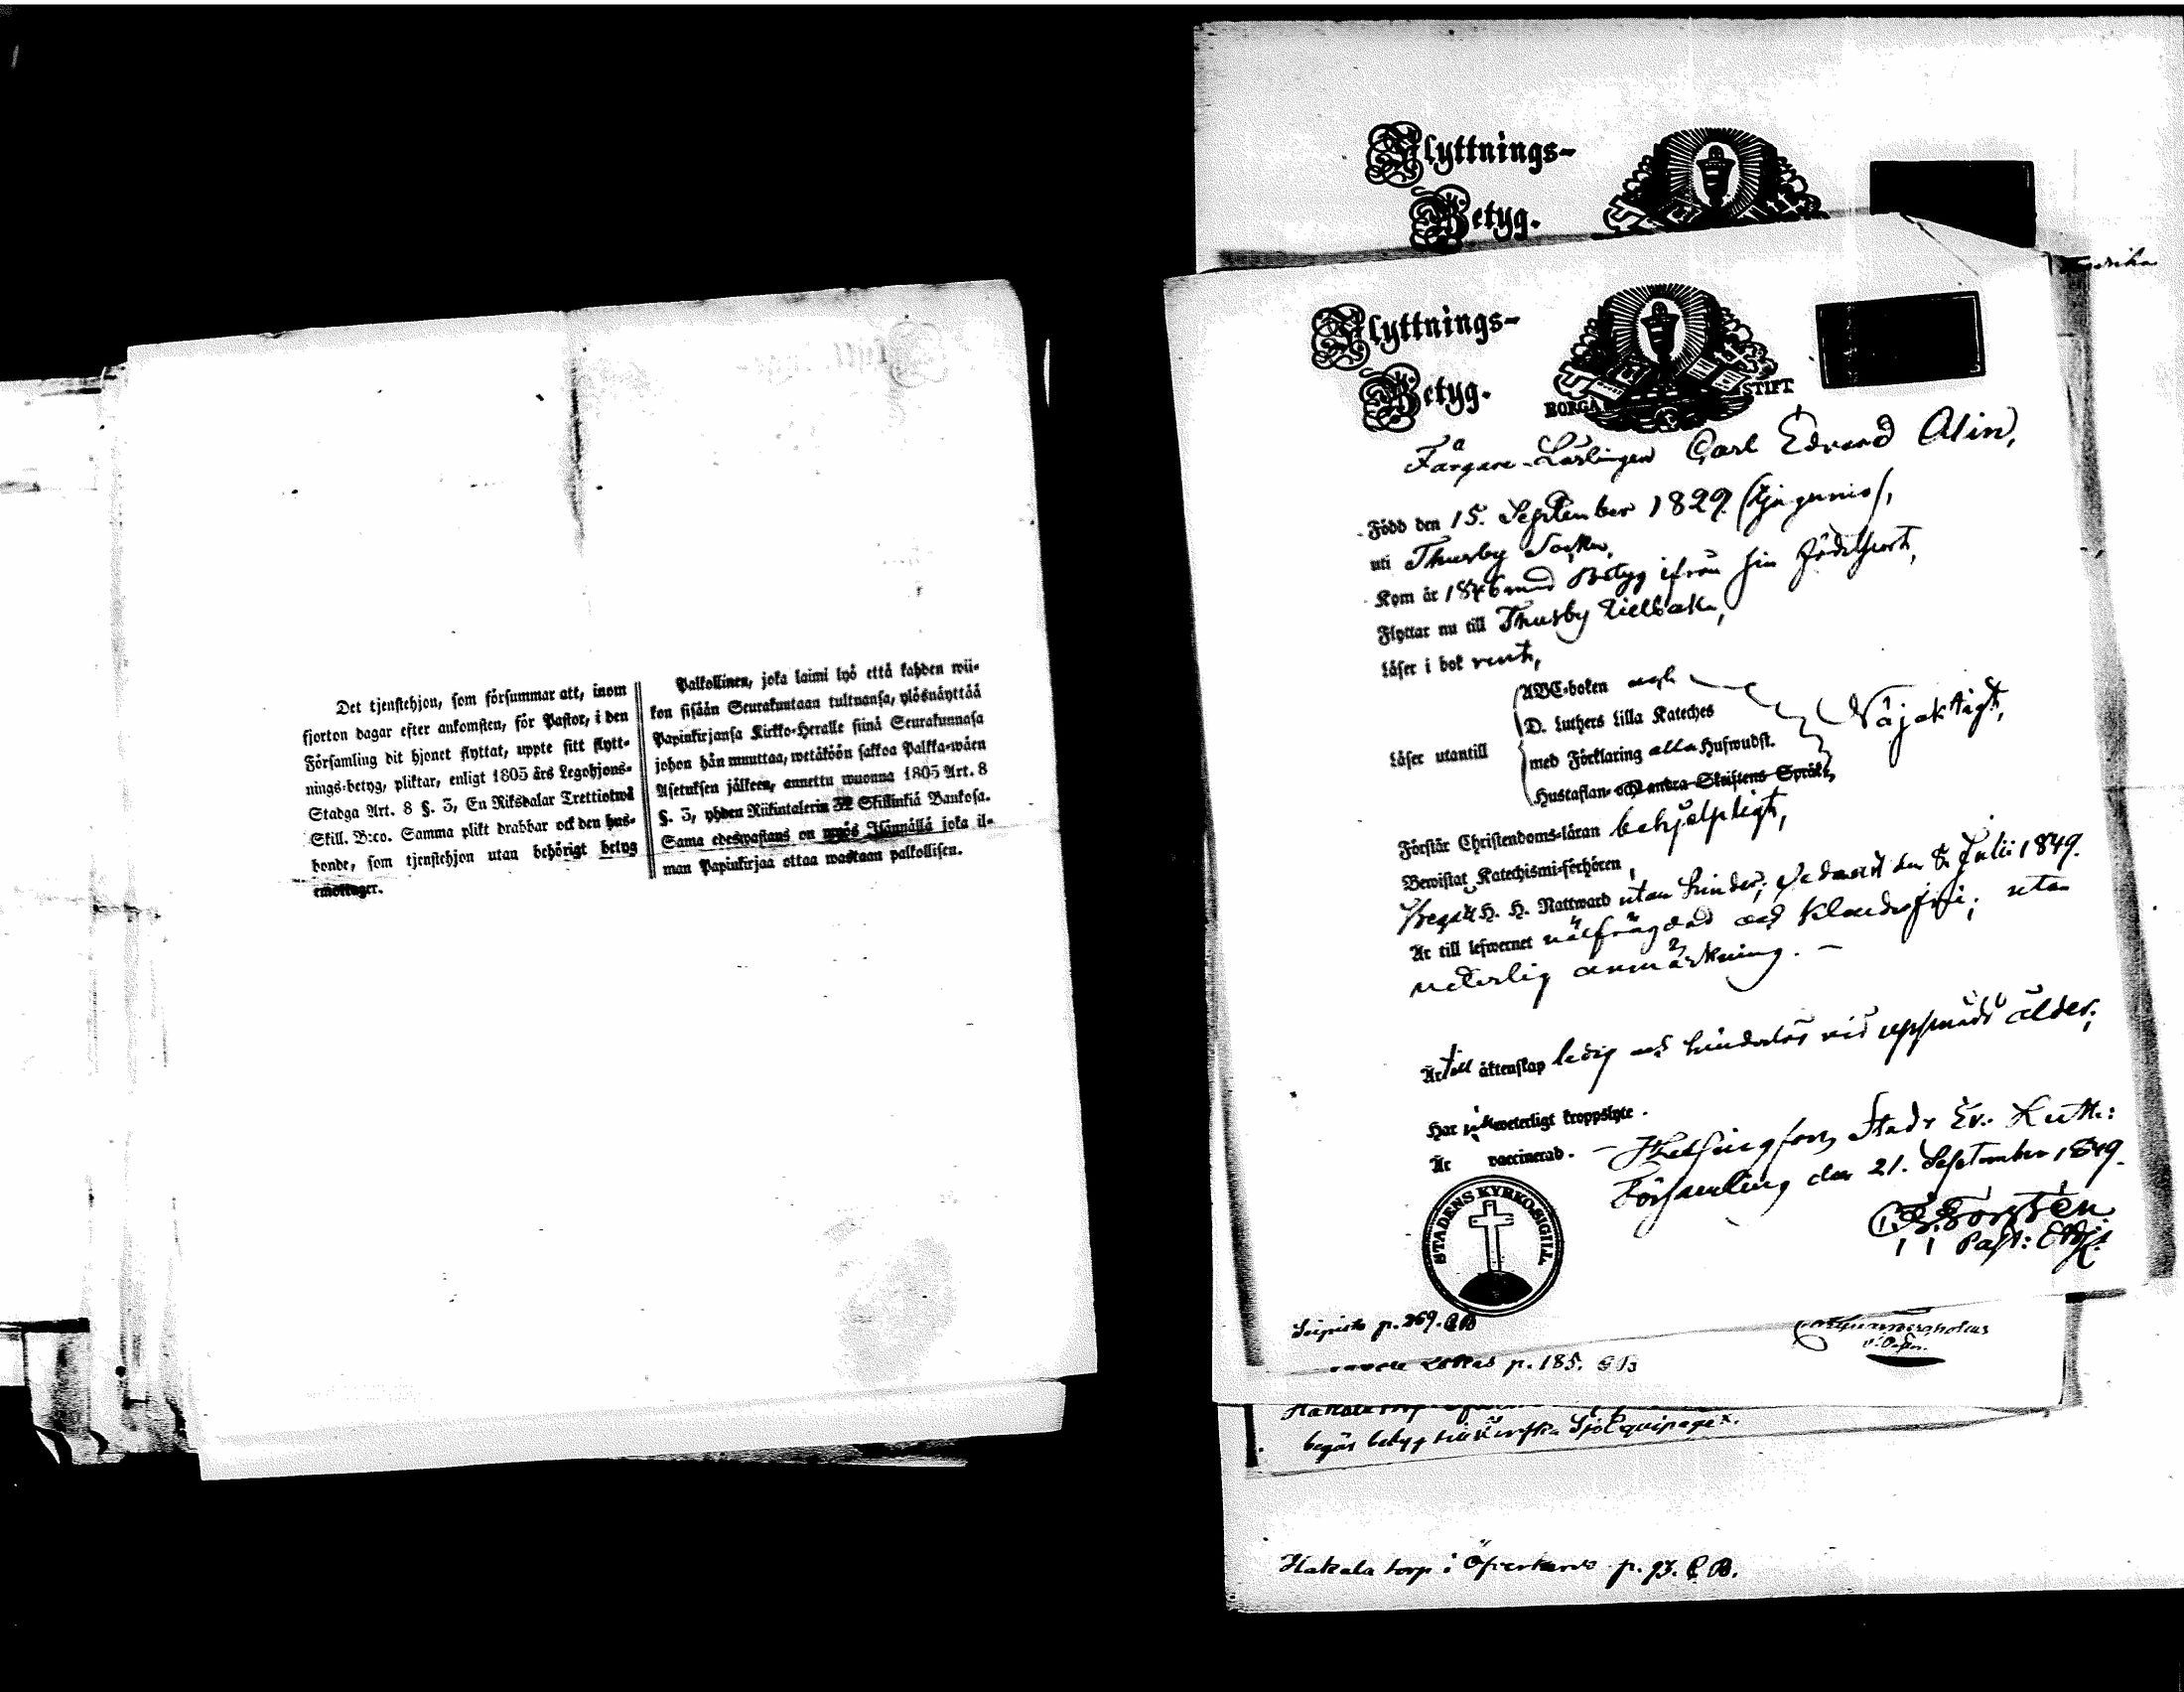 Det tjenstehjon, som försummar att, inom
fjorton dagar efter ankomsten, för Pastor, i den
Församling dit hjonet flyttat, uppte sitt flytt-
nings-betyg, pliktar, enligt 1805 års Legohjons-
Stadga Art. 8 §. 3, En Riksdalar Trettiotwå
Skill. B:co. Samma plikt drabbar ock den hus-
bonde, som tjenstehjon utan behörigt betyg
emottager.
Palkollinen, joka laimi lyö että kahden wii-
kon sisään Seurakuntaan tultuansa, ylösnäyttää
Papinkirjansa Kirkko-Heralle siinä Seurakunnasa
johon hän muuttaa, wetäköön sakkoa Palkka-wäen
Asetuksen jälkeen, annettu wuonna 1805 Art. 8
§. 3, yhden Riikintalerin 32 Skillinkiä Bankosa.
Sama edeswastaus on myös Isännällä joka il-
man Papinkirjaa ottaa wastaan palkollisen.
Flyttnings-
Betyg.
Flyttnings-
Betyg.
BORGÅ STIFT
Färgare-Lärlingen Carl Edvard Alin,
Född den 15. September 1829
uti Thusby Socken,
Kom år 1846 med Betyg ifrån sin födelseort,
Flyttar nu till Thusby tillbaka,
Läser i bok rent,
Läser utantill
ABC-boken
D. Luthers Lilla Kateches
med Förklaring alla Hufwudst.
Hustaflan och andra Skriftens Språk,
Nöjaktigt,
Förstår Christendoms-läran behjelpligt,
Bewistat Katechismi-förhören,
Begått H. H. Nattward utan hinder, sednast den 8 Julii 1849.
Är till lefwernet välfrägdad och klanderfri; utan
veterlig anmärkning. —
Är till äktenskap ledig och hinderlös vid uppnådd ålder;
Har icke weterligt kroppslyte.
Är vaccinerad. — Helsingfors Stads Ev. Luth:
Församling den 21. September 1849.
Forstén
Past: Adj.
STADENS KYRKO SIGILL
p. 269. CB
p. 185. CB
begär betyg till Sjö Equipaget.
Hakala torp i p. 93. CB.